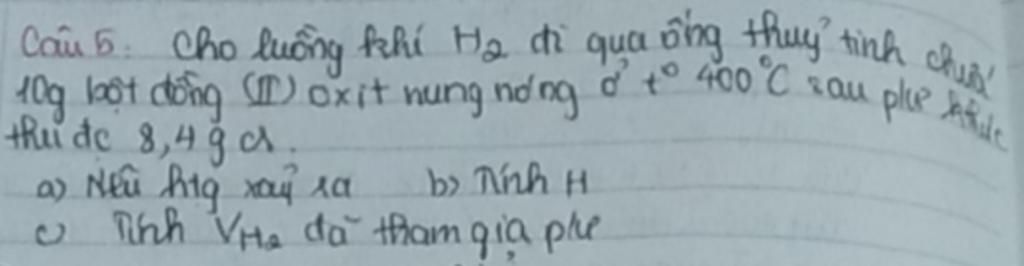 Câu 5: Cho luồng khí H2 đi qua ống thuỷ tinh chứa
10g bột đồng (II) oxit nung nóng ở t° 400°C sau pư kthúc
thu đc 8,4 g cr.
a) Nêu htg xảy ra b) Tính H
c) Tính VH2 đã tham gia pư